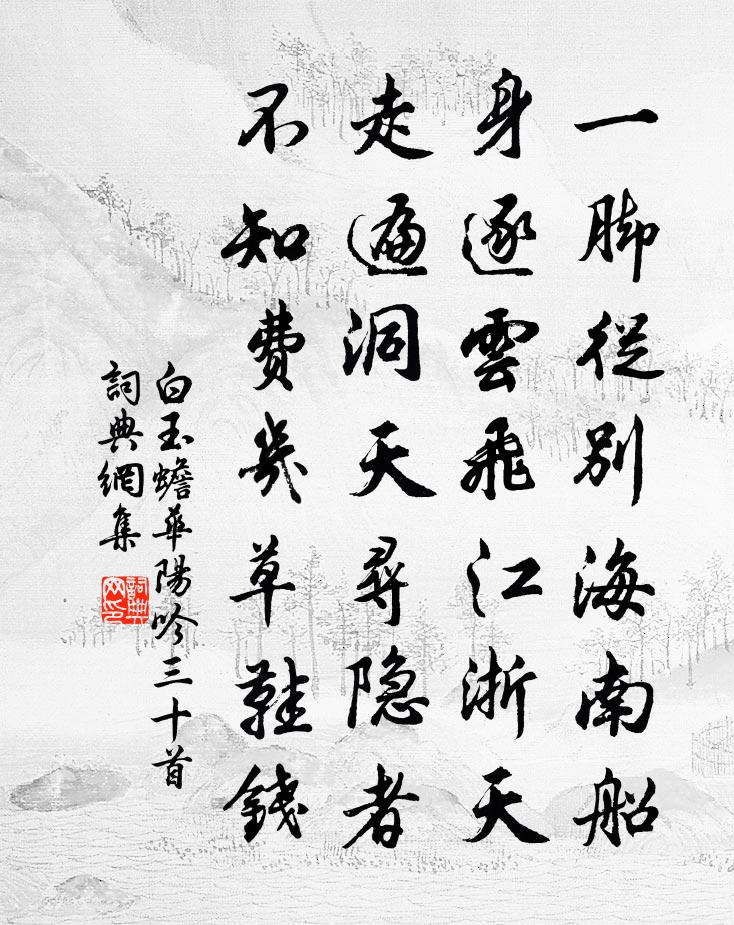 一脚從别海南船
身逐雲飛江浙天
走遍洞天尋隐者
不知費幾草鞋錢
白玉蟾華陽吟三十首
詞典網集
詞典网印